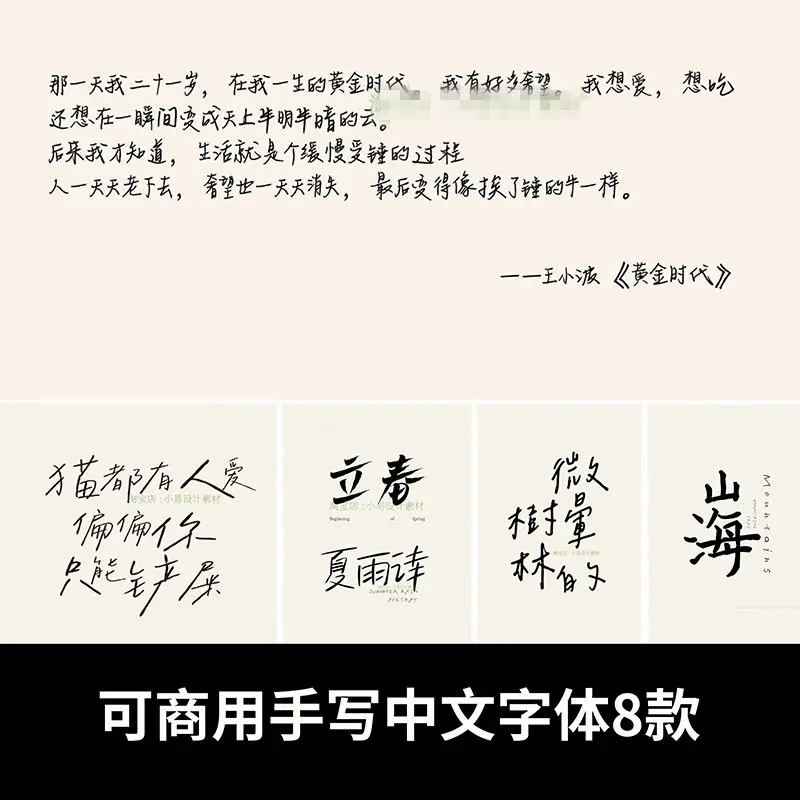 那一天我二十一岁，在我一生的黄金时代。我有好多奢望。我想爱，想吃
还想在一瞬间变成天上半明半暗的云。
后来我才知道，生活就是个缓慢受锤的过程
人一天天老下去，奢望也一天天消失，最后变得像挨了锤的牛一样。
——王小波《黄金时代》
猫都有人爱
淘宝店：小易设计素材
偏偏你
只能铲屎
立春
淘宝店：小易设计素材
Beginning of Spring
夏雨诗
SUMMER RAIN
POETRY
微
樹暈
林的
山海
Mountains
可商用手写中文字体8款